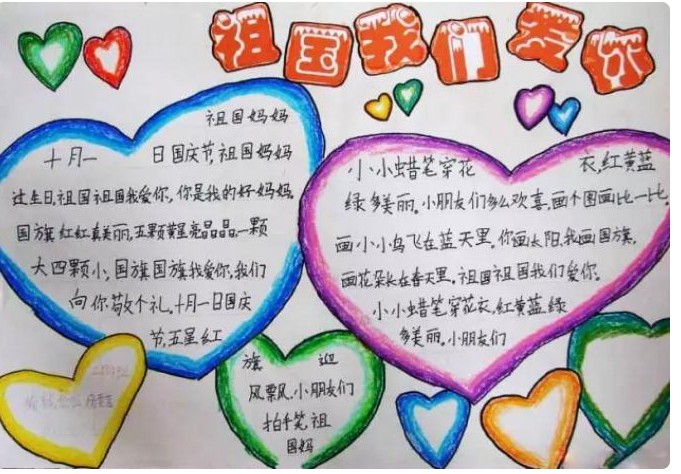 祖国我们爱你
祖国妈妈
十月一 日国庆节,祖国妈妈
过生日,祖国祖国我爱你,你是我的好妈妈,
国旗红红真美丽,五颗黄星亮晶晶,一颗
大四颗小,国旗国旗我爱你,我们
向你敬个礼,十月一日国庆
节,五星红
旗 迎
风飘,小朋友们
拍手笑,祖
国妈
小小蜡笔穿花 衣,红黄蓝
绿多美丽。小朋友们多么欢喜,画个图画比一比,
画小小鸟飞在蓝天里,你画太阳,我画国旗,
画花朵长在春天里。祖国祖国我们爱你。
小小蜡笔穿花衣,红黄蓝绿
多美丽。小朋友们